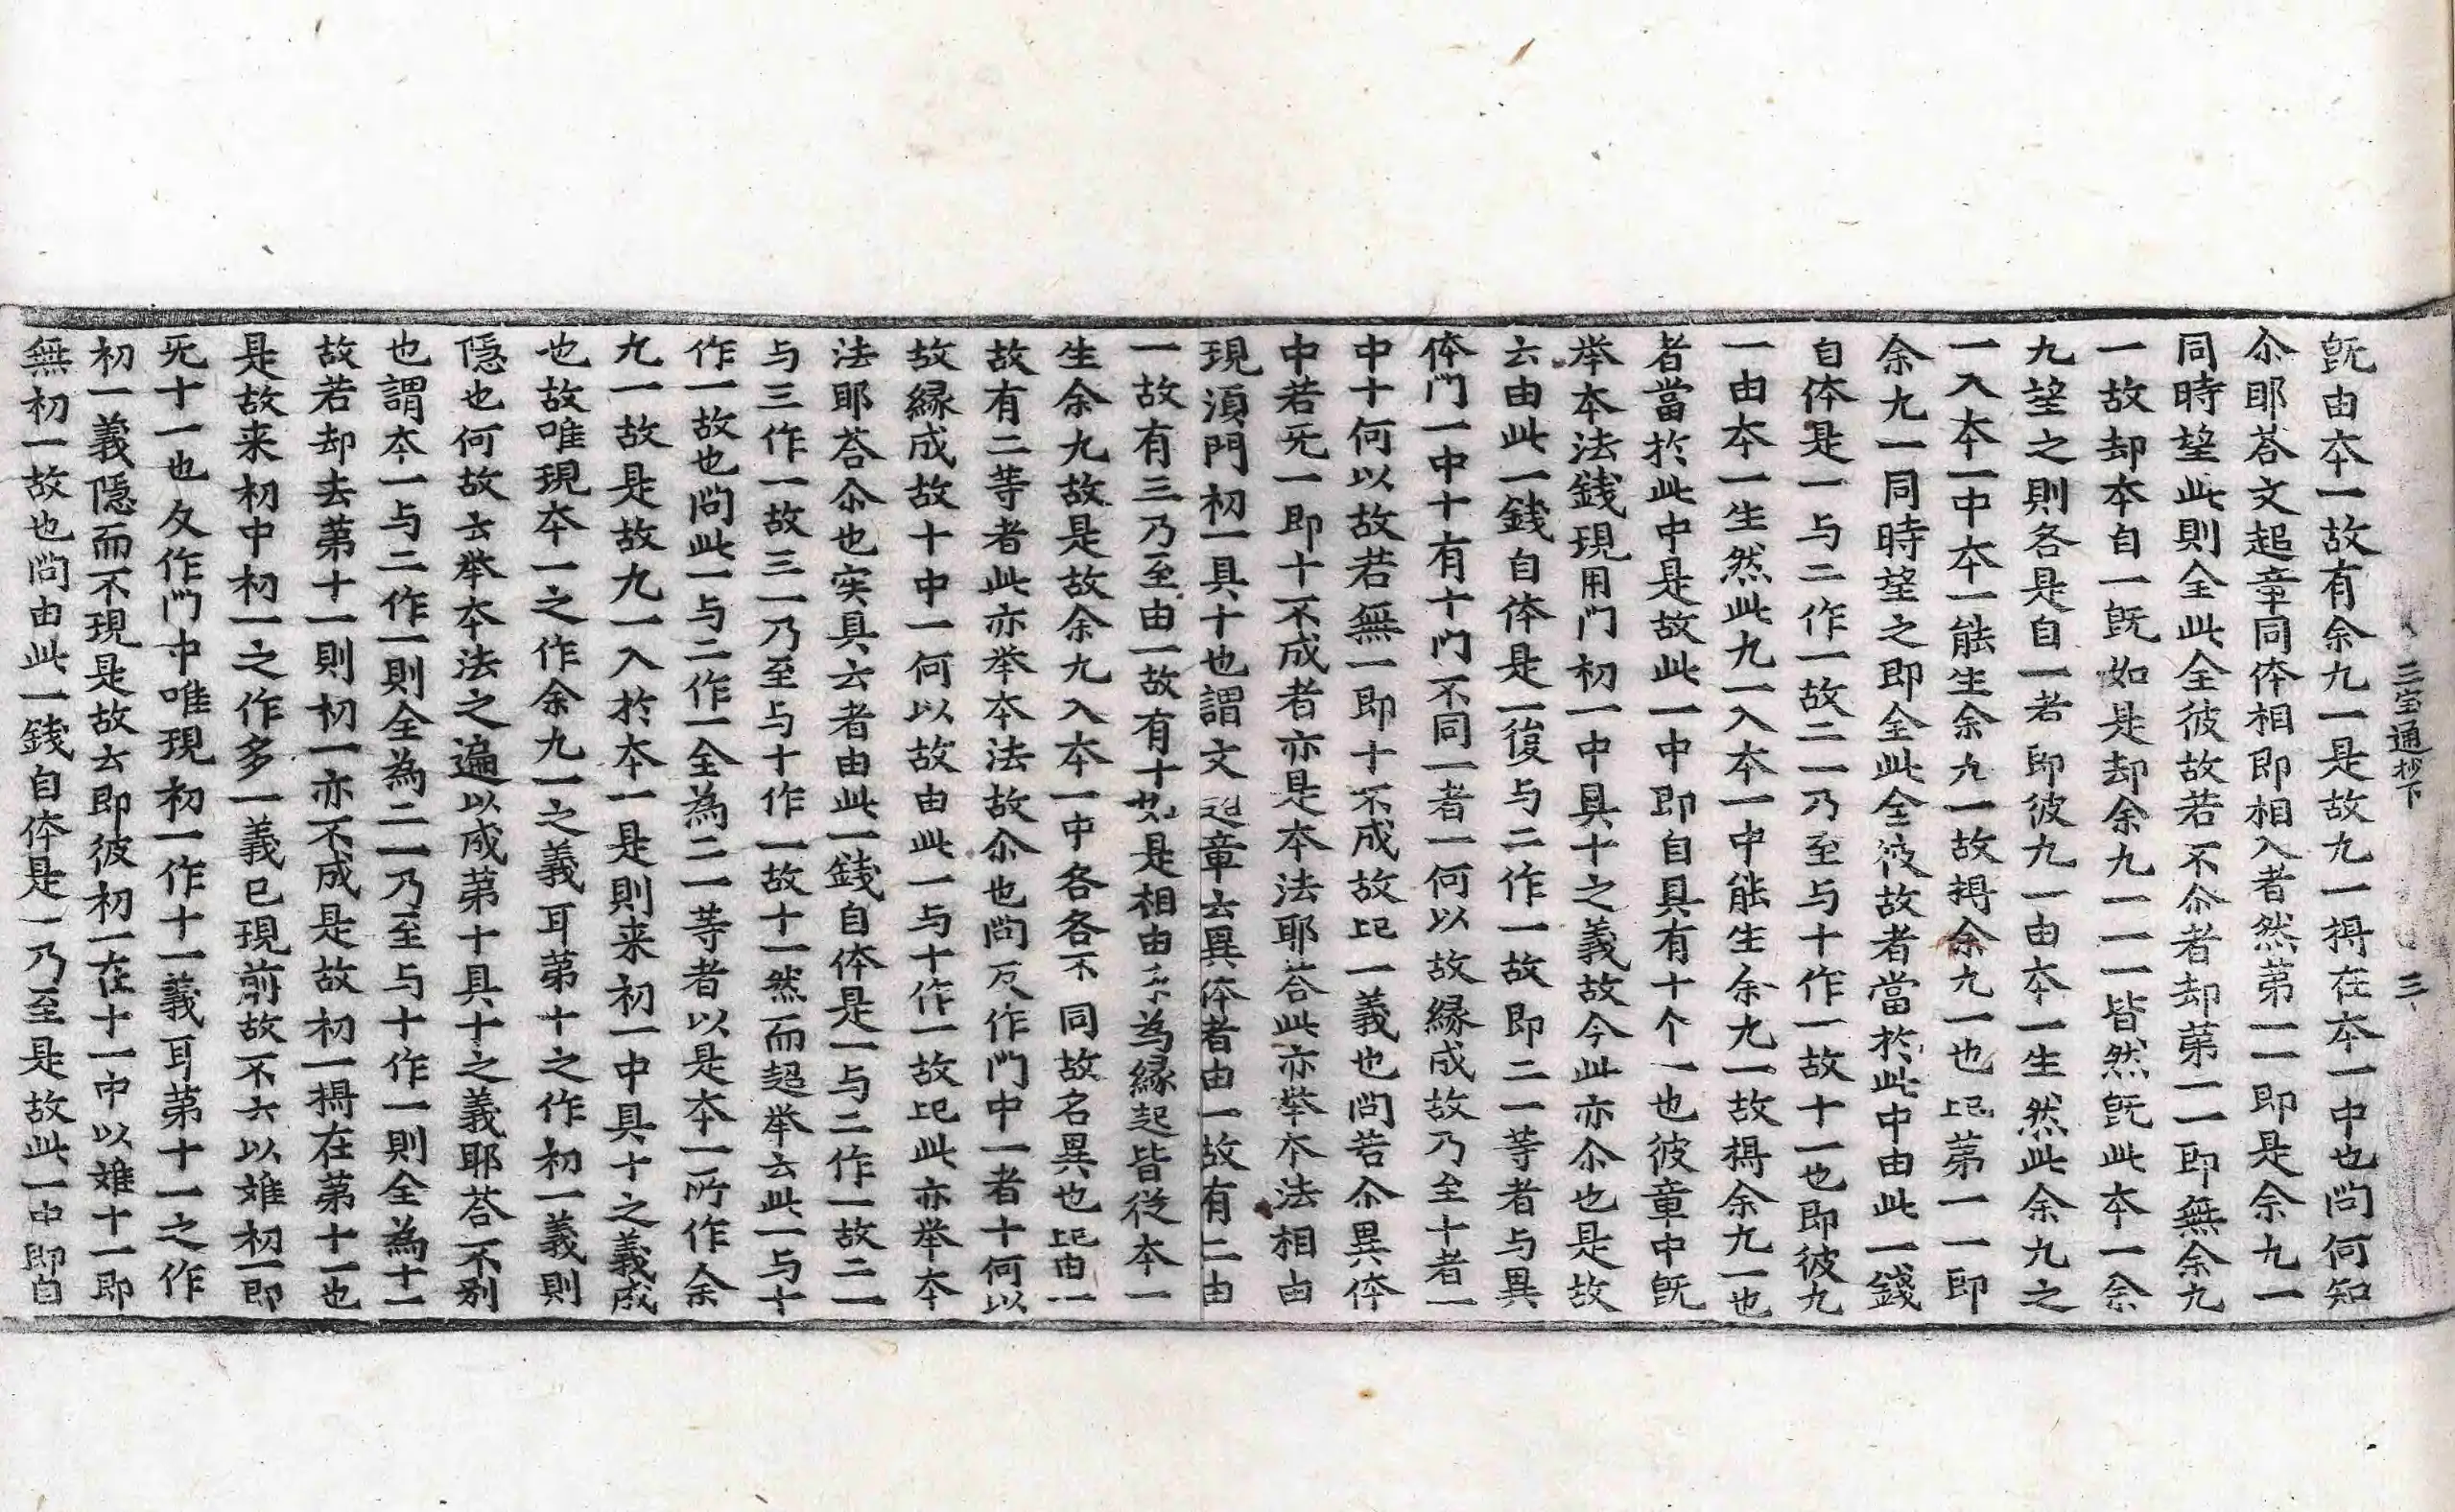 三宝通抄下 三
旣由本一故有余九一是故九一揖在本一中也問何知
尒耶荅文超章同体相即相入者然第一一即是余九一
同時望此則全此全彼故若不尒者却第一一即無余九
一故却本自一旣如是却余九一一一皆然旣此本一余
九望之則各是自一者即彼九一由本一生然此余九之
一入本一中本一能生余九一故揖余九一也記第一一即
余九一同時望之即全此全彼故者當於此中由此一錢
自体是一与二作一故二一乃至与十作一故十一也即彼九
一由本一生然此九一入本一中能生余九一故揖余九一也
者當於此中是故此一中即自具有十个一也彼章中旣
举本法錢現用門初一中具十之義故今此亦尒也是故
云由此一錢自体是一復与二作一故即二一等者与異
体門一中十有十門不同一者一何以故縁成故乃至十者一
中十何以故若無一即十不成故記一義也問若尒異体
中若旡一即十不成者亦是本法耶荅此亦举本法相由
現湏門初一具十也謂文超章云異体者由一故有二由
一故有三乃至由一故有十如是相由系為縁起皆従本一
生余九故是故余九入本一中各各不同故名異也記由一
故有二等者此亦举本法故尒也問反作門中一者十何以
故縁成故十中一何以故由此一与十作一故記此亦举本
法耶荅尒也实具云者由此一錢自体是一与二作一故二一
与三作一故三一乃至与十作一故十一然而超举云此一与十
作一故也問此一与二作一全為二一等者以是本一所作余
九一故是故九一入於本一是則来初一中具十之義成
也故唯現本一之作余九一之義耳第十之作初一義則
隱也何故云举本法之遍以成第十具十之義耶荅不别
也謂本一与二作一則全為二一乃至与十作一則全為十一
故若却去第十一則初一亦不成是故初一揖在第十一也
是故来初中初一之作多一義已現前故不云以难初一即
旡十一也反作門中唯現初一作十一義耳第十一之作
初一義隱而不現是故云即彼初一在十一中以难十一即
無初一故也問由此一錢自体是一乃至是故此一中即自